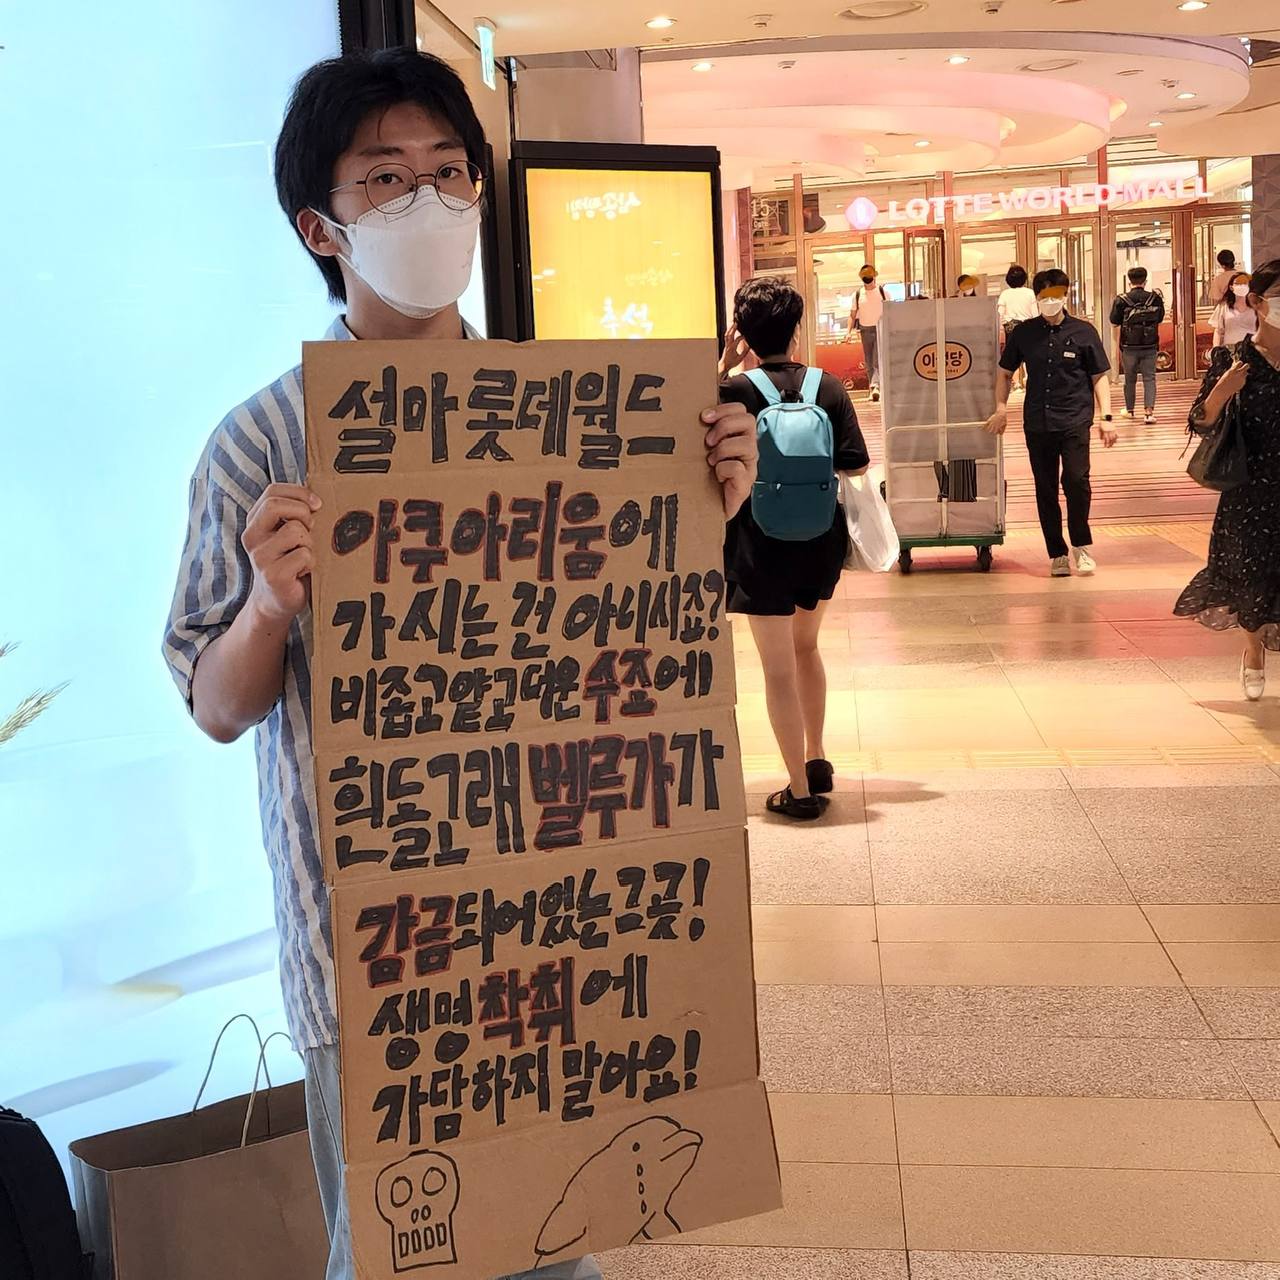 설마 롯데월드
아쿠아리움에
가시는 건 아니시죠?
비좁고 얕고 더운 수조에
흰돌고래 벨루가가
감금되어있는 그곳!
생명 착취에
가담하지 말아요!
LOTTE WORLD MALL
추석